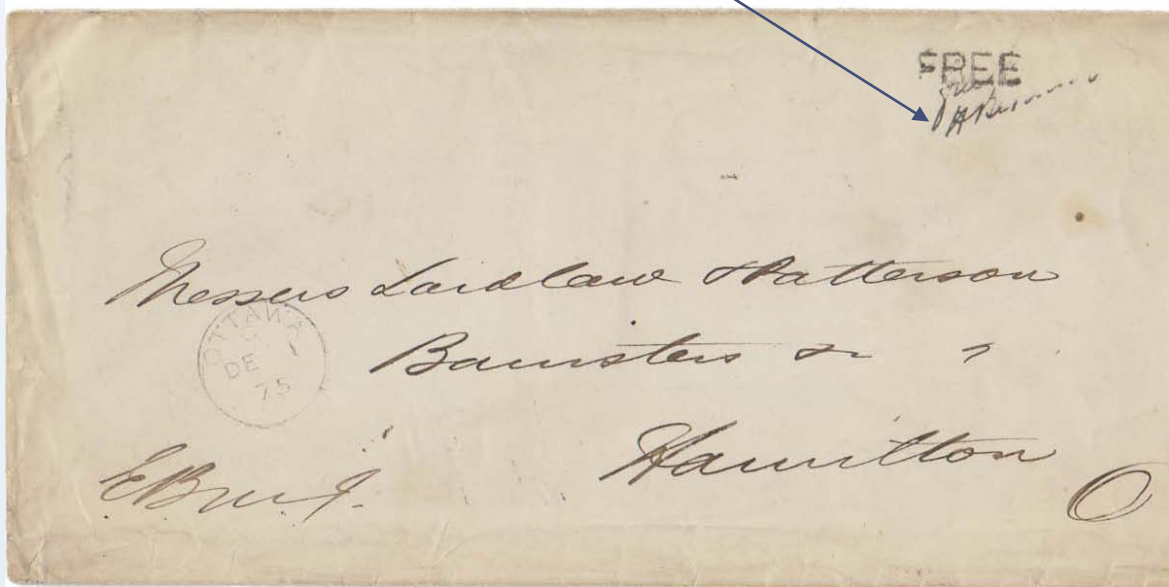 FREE
Messers Laidlaw & Patterson
OTTAWA
DE
75
Barristers
Hamilton
O